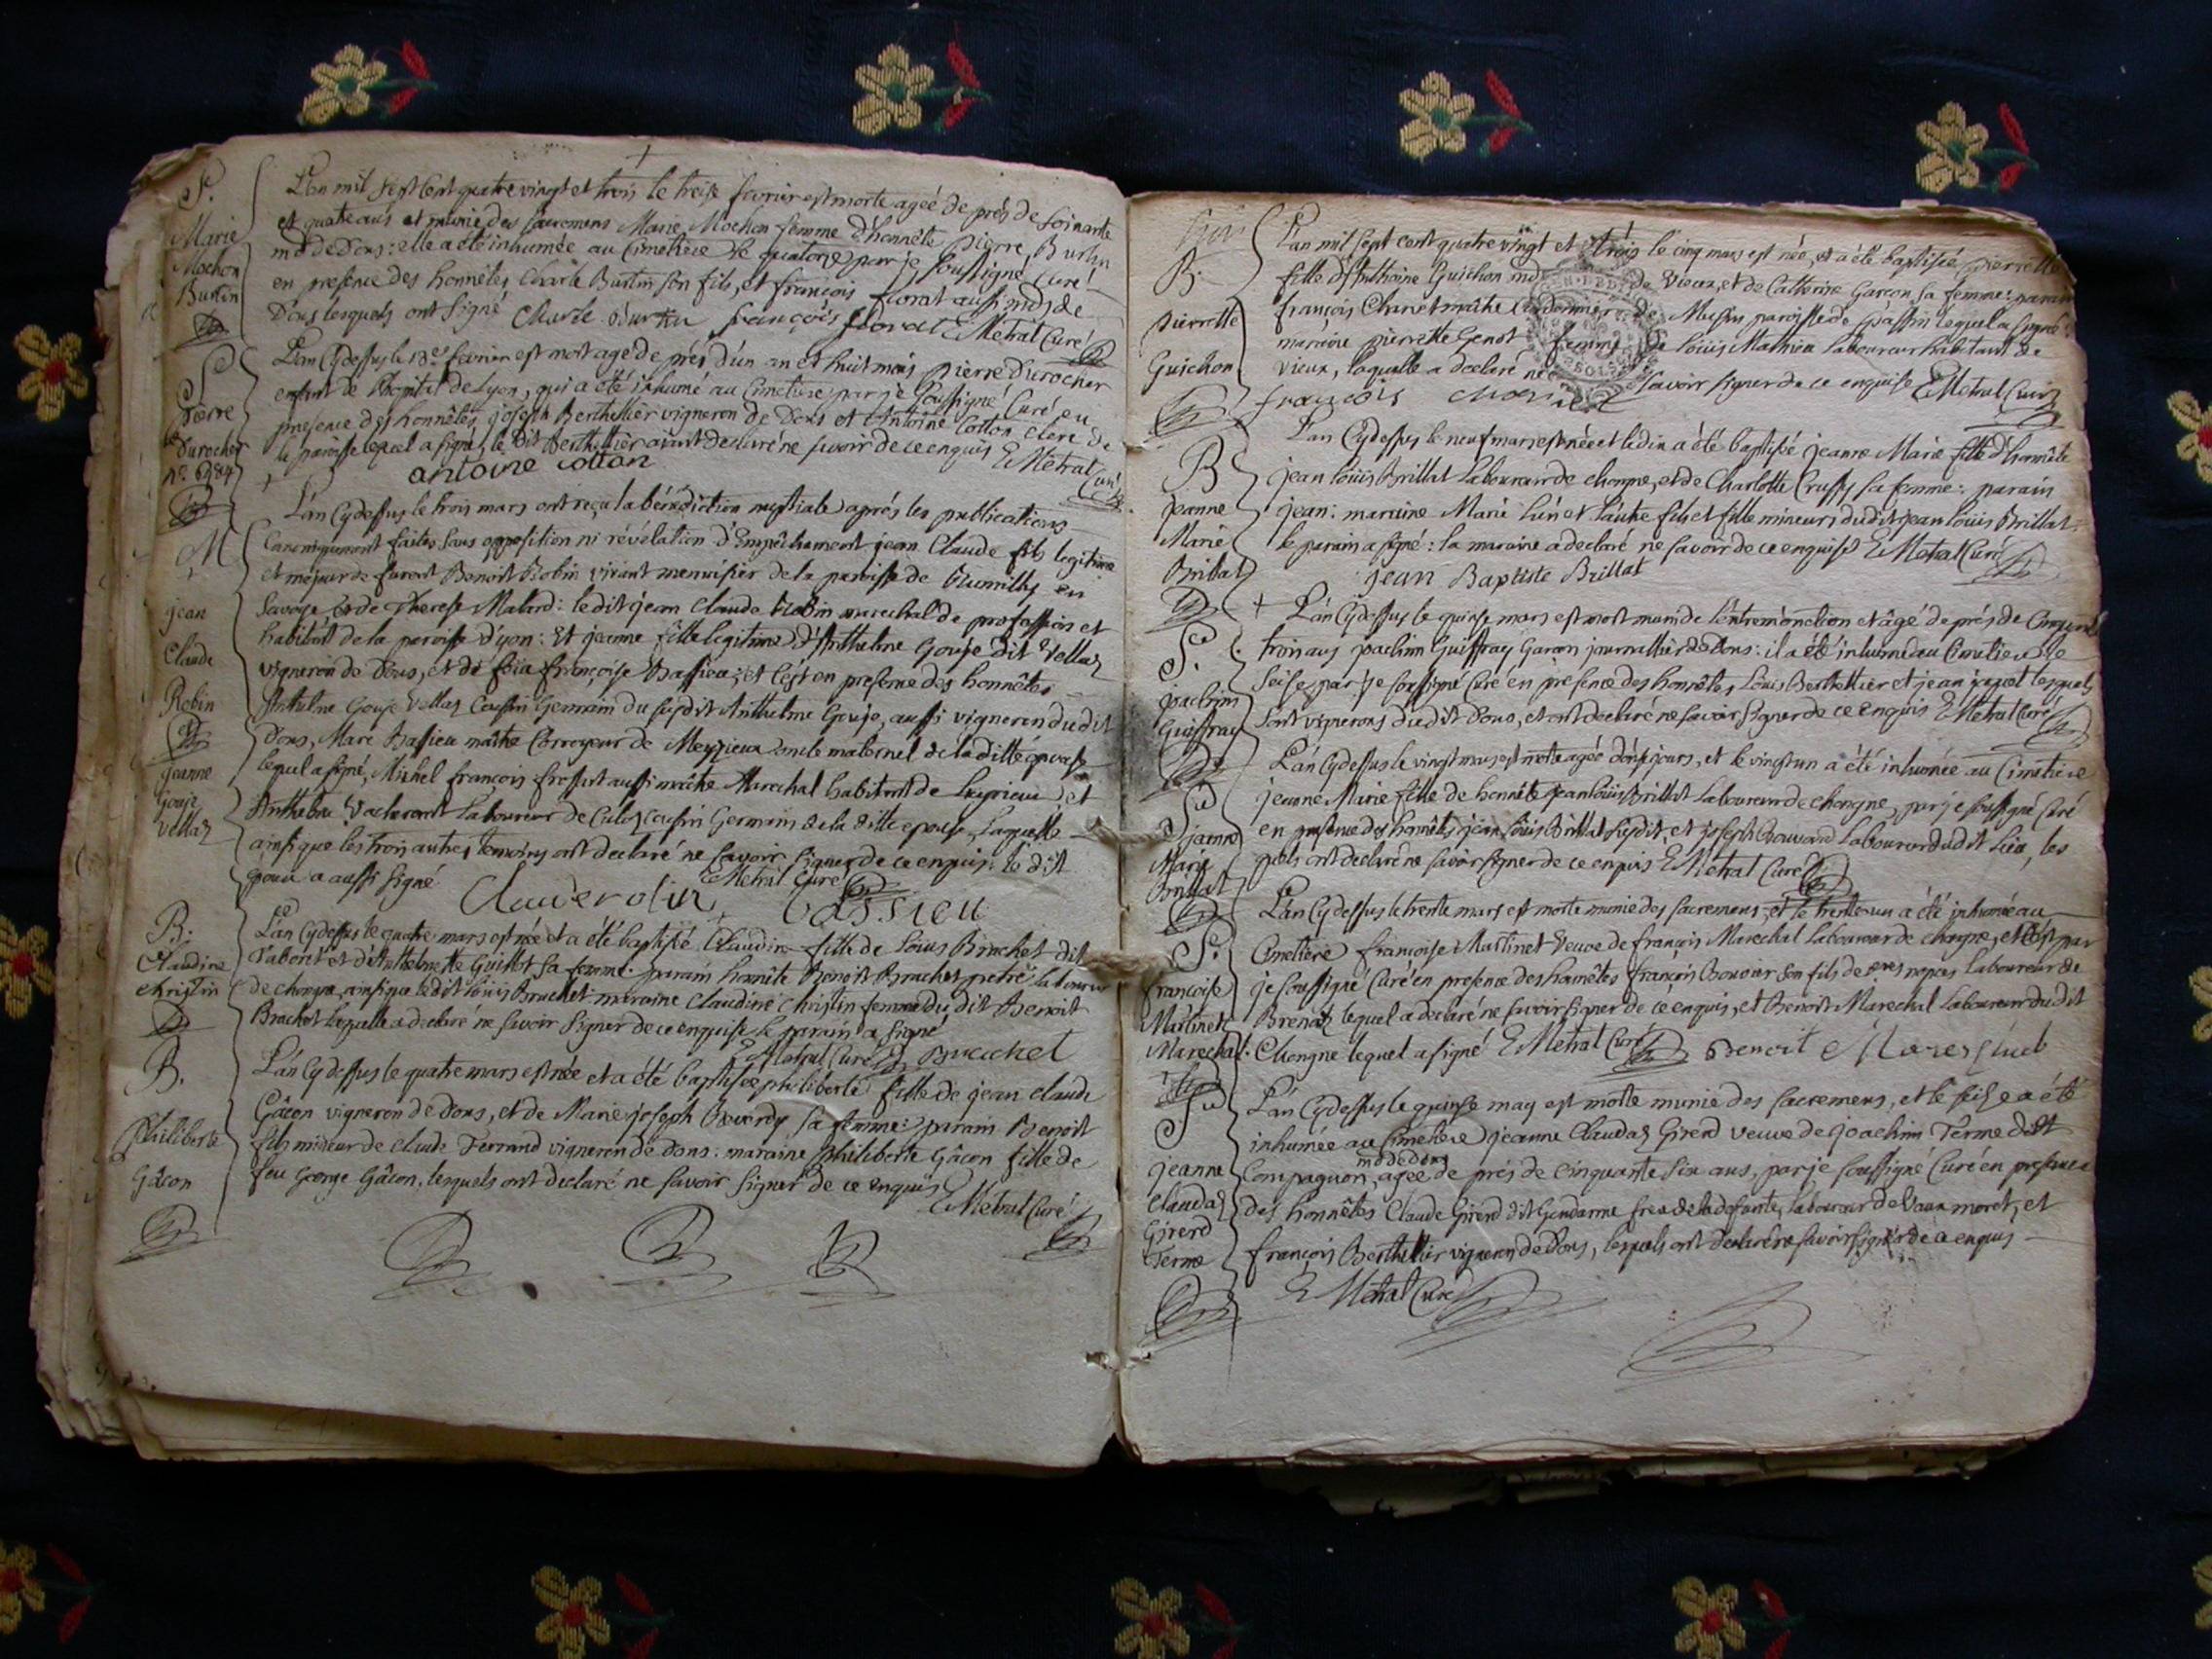 S.
Marie
Mochon
Burtin
L'an mil sept cent quatre vingt et trois le treize fevrier est morte ageé de prés de soixante
et quatre ans et munie des sacremens Marie Mochon femme d'honnête Pierre Burtin
md de Dons: elle a été inhumée au Cimetiere le quatorze par je soussigné Curé
en presence des honnêtes Charle Burtin son fils, et françois florat aussi md de
Dons lesquels ont signé Charle Burtin françois florat E Metral Curé
S
Pierre
Durocher
N°. 6984
L'an Cydessus le 18e fevrier est mort agé de prés d'un an et huit mois Pierre Durocher
enfant de l'hopital de Lyon, qui a été inhumé au Cimetiere par je soussigné Curé en
presence des honnêtes joseph Berthellier vigneron de Dons et Antoine Cotton clerc de
la paroisse lequel a signé, le dit Berthellier aiant declaré ne savoir de ce enquis E Metral
antoine cottan Curé
M
jean
Claude
Robin
jeanne
Gouje
Vellaz
L'an Cydessus le trois mars ont reçu la bénédiction nuptiale aprés les publications
Canoniquement faites sans opposition ni révélation d'Empêchement jean Claude fils legitime
et majeur de furent Benoit Robin vivant menuisier de la paroisse de Rumilly en
Savoye et de Therese Malard: le dit jean Claude Robin marechal de profession et
habitant de la paroisse d'yon: Et jeanne fille legitime d'Anthelme Gouje dit Vellaz
vigneron de Dons, et de feue françoise Bassieu; et c'est en presence des honnêtes
Anthelme Gouje Vellaz Cousin Germain du susdit Anthelme Gouje, aussi vigneron du dit
Dons, Marc Bassieu maître Corroyeur de Meyzieux oncle maternel de la ditte épouse
lequel a signé, Michel françois frossart aussi maître Marechal habitant de Luyrieux, et
Anthelme Vacherand Laboureur de Culoz cousin Germain de la ditte epouse, laquelle
ainsi que les trois autres temoins ont declaré ne savoir signer de ce enquis: le dit
epoux a aussi signé E Metral Curé
Claude robin bassieu
B.
Claudine
christin
L'an Cydessus le quatre mars est née et a été baptisée Claudine fille de Loüis Brachet dit
Taboret et d'Anthelmette Guillot sa femme: parain honnête Benoit Brachet petré laboureur
de chongne, ainsi que le dit loüis Brachet: maraine claudine christin femme du dit Benoit
Brachet laquelle a declaré ne savoir signer de ce enquise le parain a signé
E Metral Curé Bracchet
B.
Philiberte
Gâcon
L'an Cydessus le quatre mars est née et a été baptisée philiberte fille de jean claude
Gâcon vigneron de Dons, et de Marie joseph Beverdy sa femme: parain Benoit
fils mineur de claude Ferrand vigneron de Dons: maraine philiberte Gâcon fille de
feu George Gâcon, lesquels ont declaré ne savoir signer de ce enquis
E Metral Curé
B.
Pierrette
Guichon
L'an mil sept cent quatre vingt et trois le cinq mars est née, et a été baptisée Pierrette
fille d'Anthoine Guichon md de Vieux, et de Catherine Garçon sa femme: parain
françois Charvet maître Cordonnier de Musin paroisse de Passin lequel a signé:
maraine pierrette Genot femme de loüis Mathieu laboureur habitant de
vieux, laquelle a declaré ne savoir signer de ce enquise E Metral Curé
françois charvet
B
jeanne
Marie
Brillat
L'an Cydessus le neuf mars est née et le dix a été baptisée jeanne Marie fille d'honnête
jean loüis Brillat Laboureur de chongne, et de Charlotte Crussy sa femme: parain
jean: maraine Marie l'un et l'autre fils et fille mineurs du dit jean loüis Brillat.
le parain a signé: la maraine a declaré ne savoir de ce enquise E Metral Curé
jean Baptiste Brillat
S.
joachim
Guiffray
L'an Cydessus le quinse mars est mort muni de l'extremonction et âgé de prés de Cinquante
trois ans joachim Guiffray Garçon journallier de Dons: il a été inhumé au Cimetiere le
seise par je soussigné Curé en presence des honnêtes Loüis Berthellier et jean jaquet lesquels
sont vignerons du dit Dons, et ont declaré ne savoir signer de ce enquis E Metral Curé
S
jeanne
Marie
Brillat
L'an Cydessus le vingt mars est morte agée d'onze jours, et le vingt un a été inhumée au Cimetiere
jeanne Marie fille de honnête jean loüis Brillat laboureur de chongne, par je soussigné Curé
en presence des honnêtes jean loüis Brillat susdit, et joseph Bouvard laboureur du dit lieu, les
quels ont declaré ne savoir signer de ce enquis E Metral Curé
S.
françoise
Martinet
Marechal.
L'an Cydessus le trente mars est morte munie des sacremens, et le trente un a été inhumée au
Cimetiere françoise Martinet Veuve de françois Marechal laboureur de chongne, et c'est par
je soussigné Curé en presence des honnêtes françois Bouvier son fils de 1eres nopces laboureur de
Brenaz lequel a declaré ne savoir signer de ce enquis, et Benoit Marechal laboureur du dit
Chongne lequel a signé E Metral Curé Benoit Mareschal
S
jeanne
Claudaz
Girerd
Terme
L'an Cydessus le quinse may est morte munie des sacremens, et le seize a été
inhumée au Cimetiere jeanne Claudaz Girerd veuve de joachim Terme dit
md de Dons
Compagnon, agée de prés de cinquante six ans, par je soussigné Curé en presence
des honnêtes Claude Girerd dit Gendarme frere de la defunte, laboureur de Vaux moret, et
françois Berthellier vigneron de Dons, lesquels ont declaré ne savoir signer de ce enquis
E Metral Curé